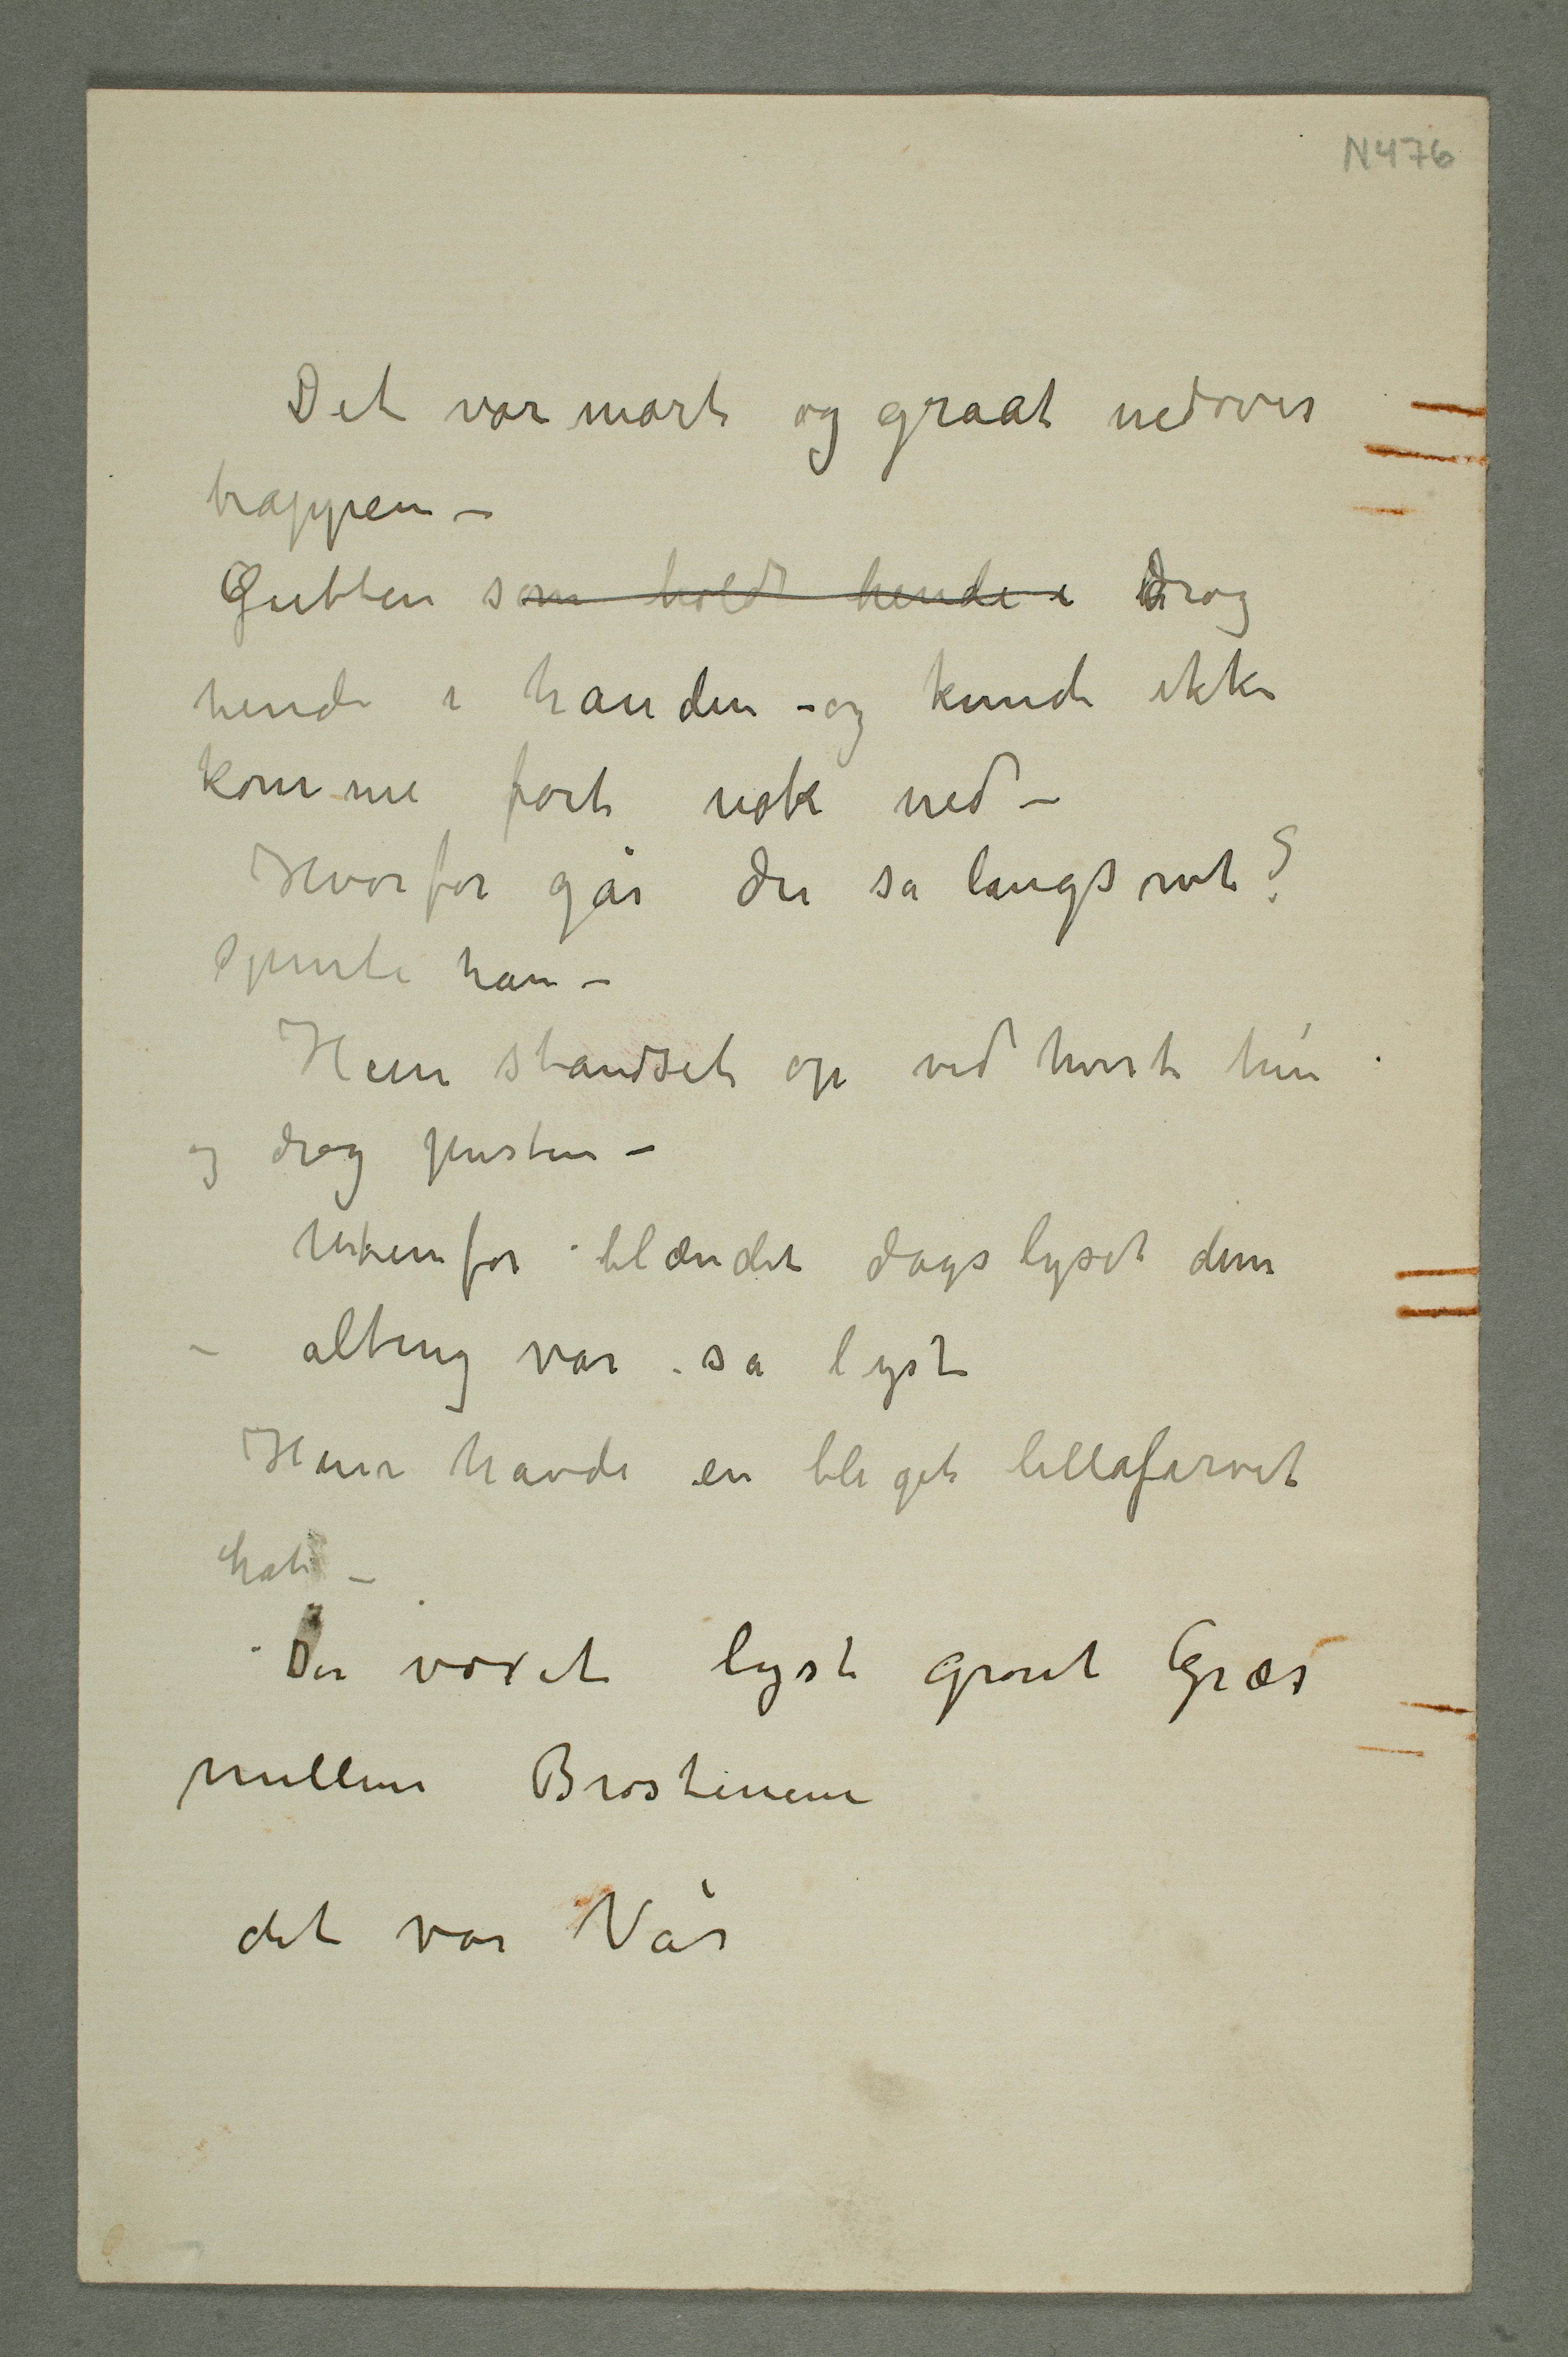 N476
Det var mørkt og graat nedover
trappen –
Gutten som holdt hende i drog
hende i handen – og kunde ikke
komme fort nok ned –
Hvorfor går du sa langsmt?
spurte han –
Hun standset op ved hvert trin
og drog pusten –
Utenfor blændet dagslyset dem
– alting var så lyst
Hun havde en bleget lillafarvet
hat –
Der voxet lyst grønt Græs
mellem Brostenene
det var Vår